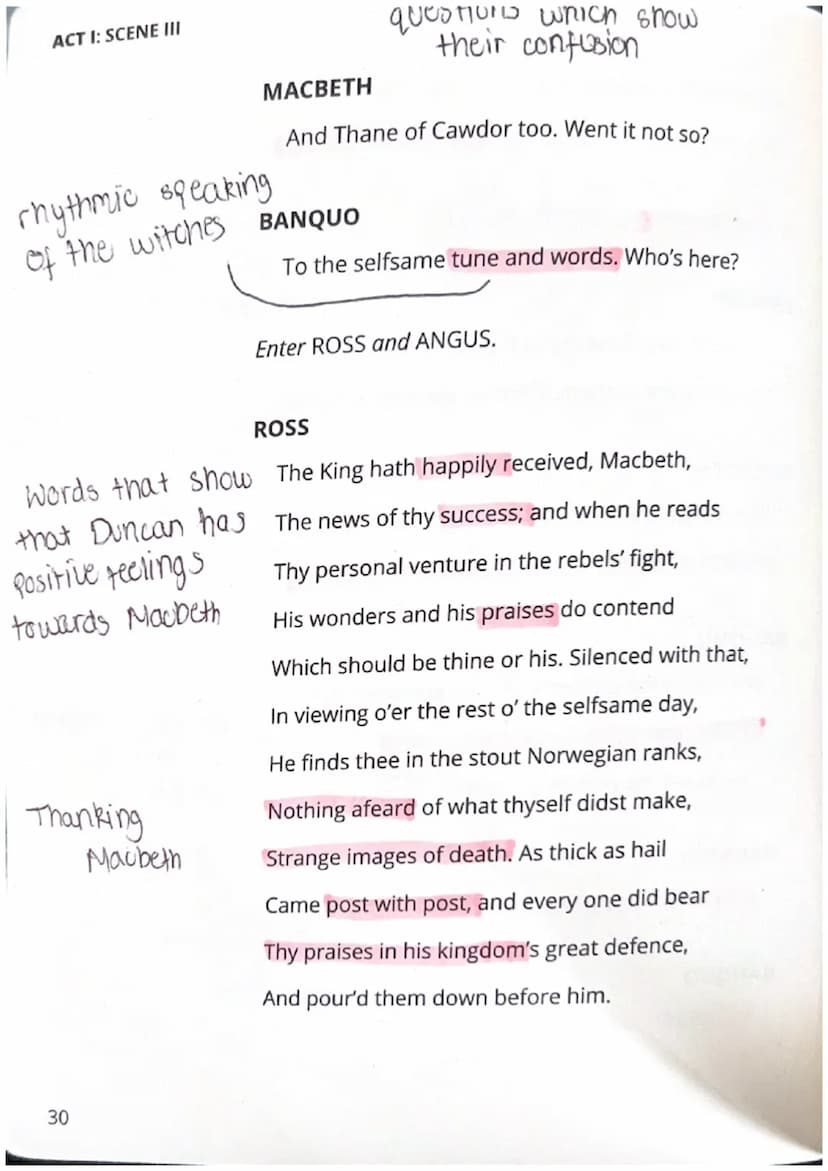 ACT I: SCENE III
questions which show
their confusion
MACBETH
And Thane of Cawdor too. Went it not so?
rhythmic speaking
of the witches
BANQUO
To the selfsame tune and words. Who's here?
Enter ROSS and ANGUS.
ROSS
Words that show
that Duncan has
positive feelings
towards Macbeth
The King hath happily received, Macbeth,
The news of thy success; and when he reads
Thy personal venture in the rebels' fight,
His wonders and his praises do contend
Which should be thine or his. Silenced with that,
In viewing o'er the rest o' the selfsame day,
He finds thee in the stout Norwegian ranks,
Thanking
Macbeth
Nothing afeard of what thyself didst make,
Strange images of death. As thick as hail
Came post with post, and every one did bear
Thy praises in his kingdom's great defence,
And pour'd them down before him.
30